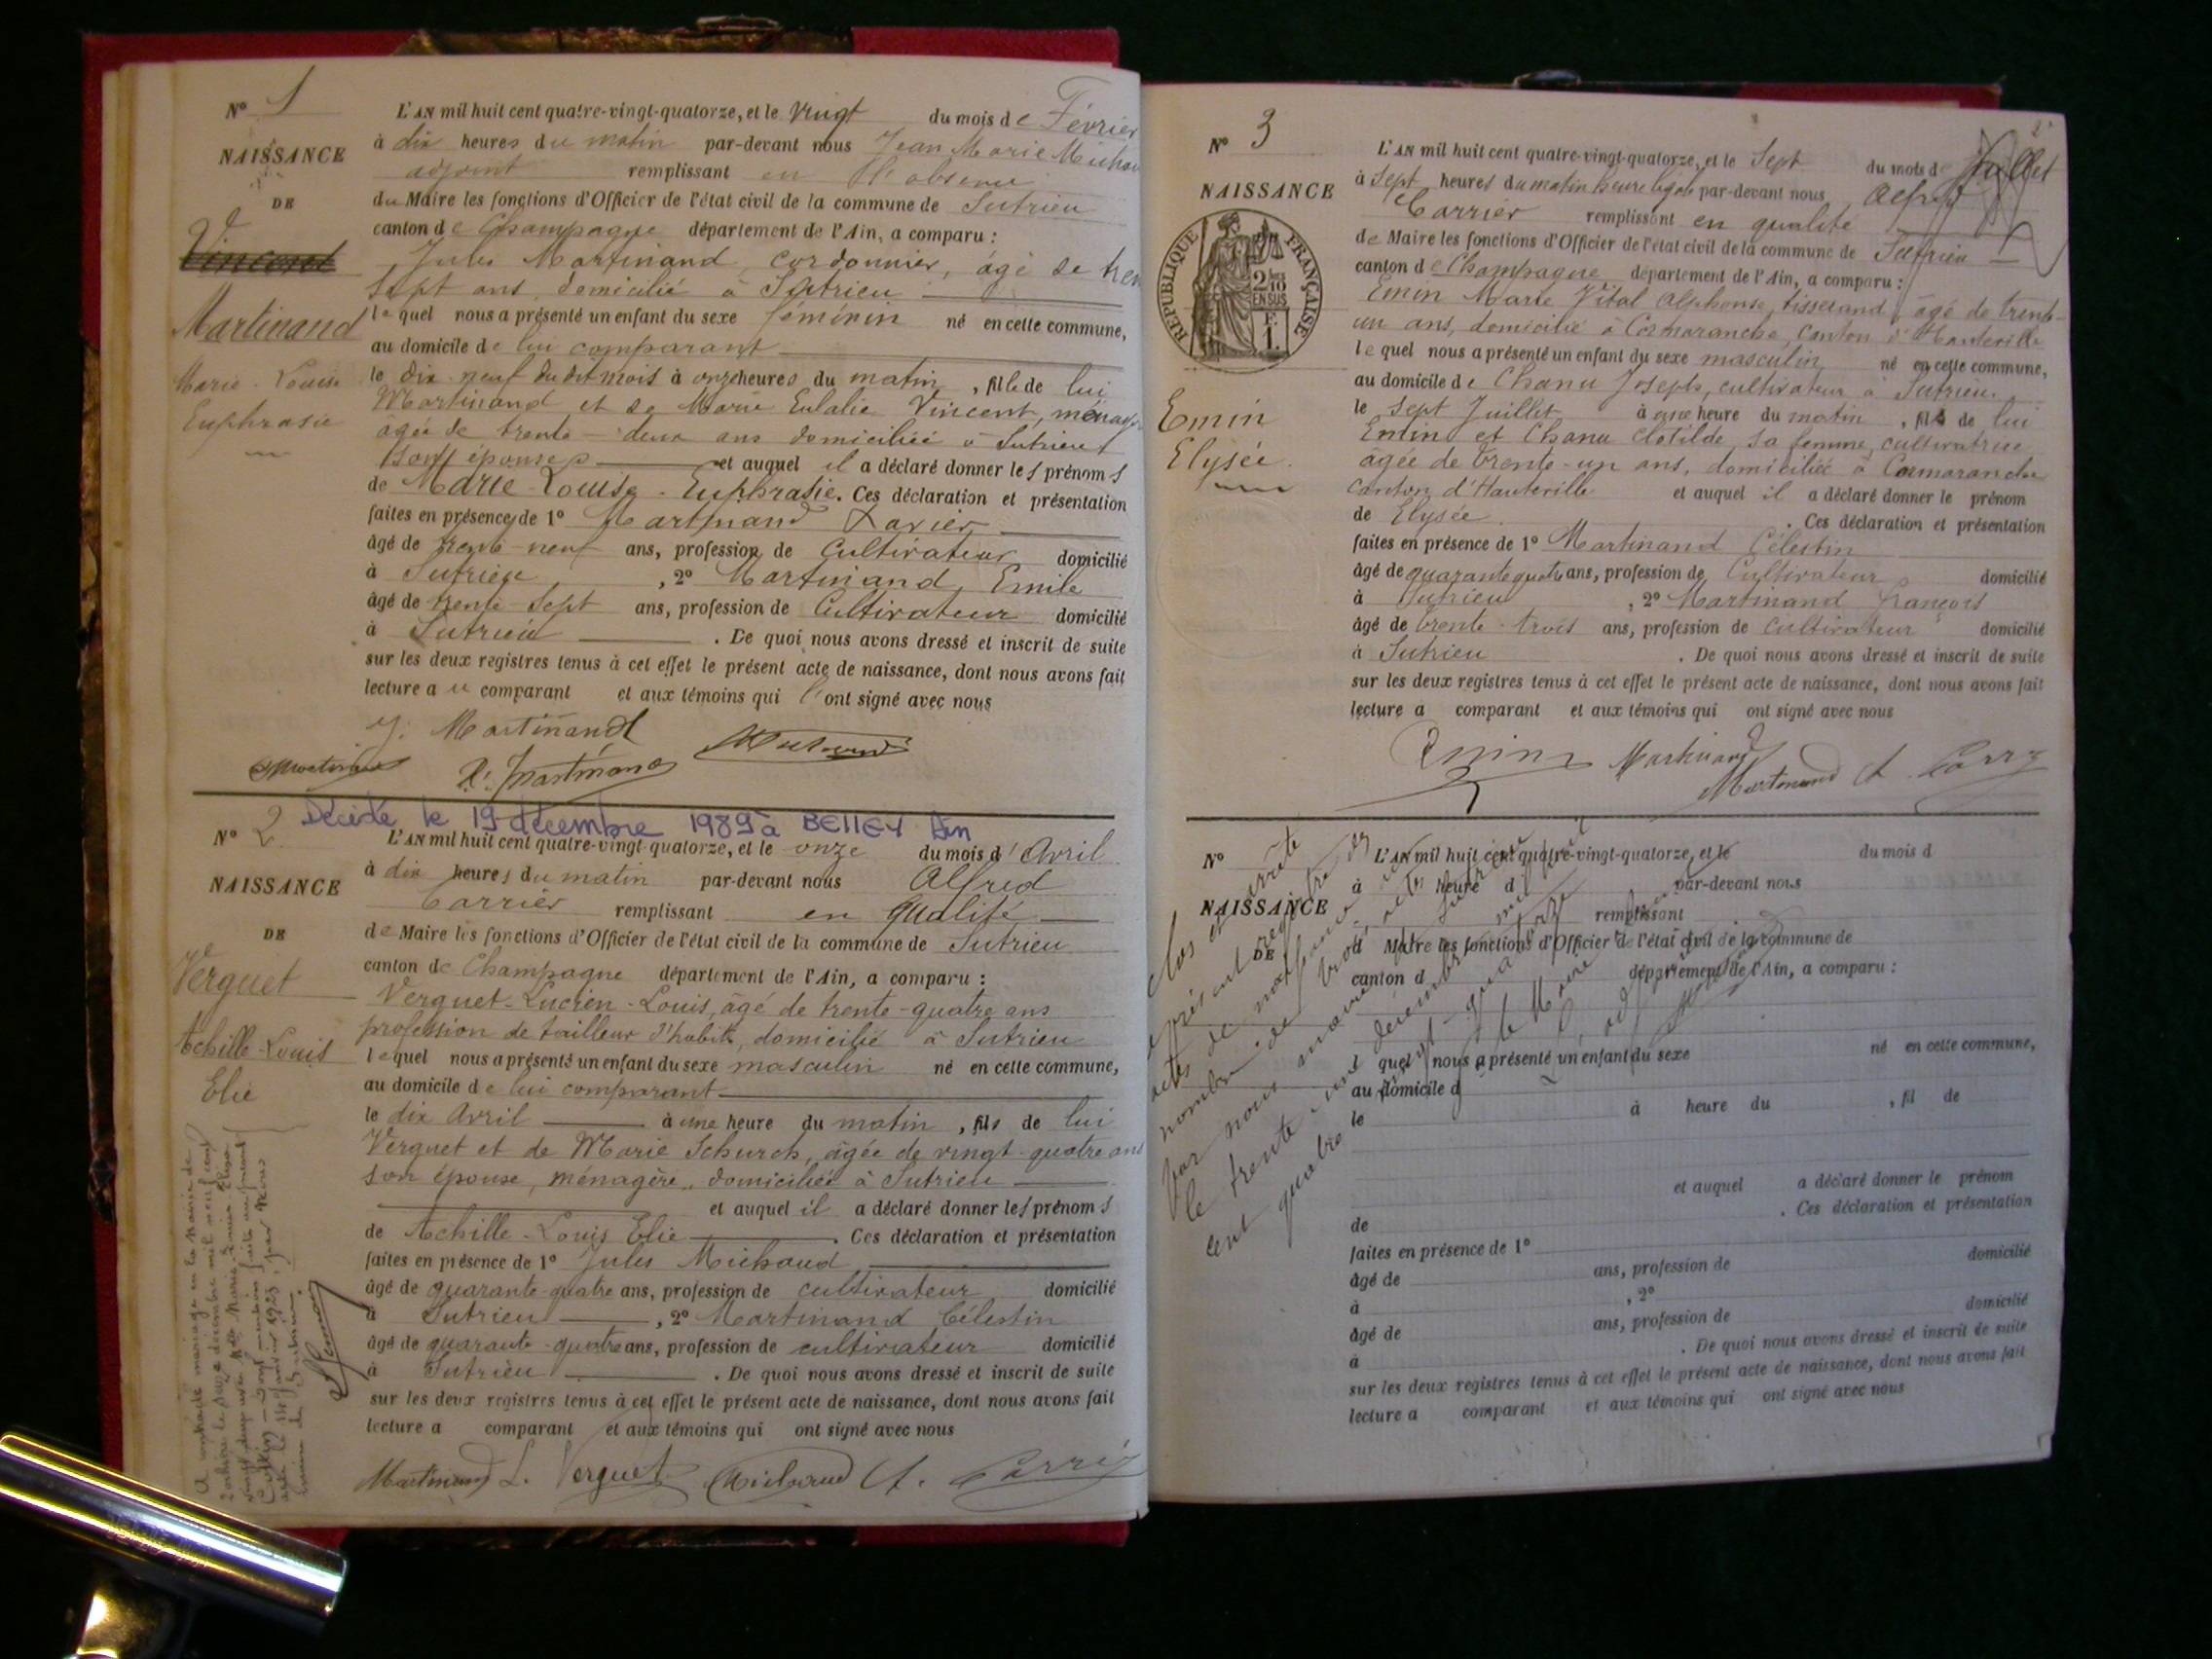 N° 1
NAISSANCE
DE
Vincent
Martinand
Marie-Louise
Euphrasie
L'AN mil huit cent quatre-vingt-quatorze, et le vingt du mois de Février
à dix heures du matin par-devant nous Jean Marie
adjoint remplissant en l'absence
du Maire les fonctions d'Officier de l'état civil de la commune de Sutrieu
canton de Champagne département de l'Ain, a comparu :
Jules Martinand, cordonnier, âgé de
sept ans, domicilié à Sutrieu
lequel nous a présenté un enfant du sexe féminin né en cette commune,
au domicile de lui comparant
le dix-neuf du dit mois à onze heures du matin, fille de lui
Martinand et de Marie Eulalie Vincent,
agée de trente-deux ans domiciliée à Sutrieu
son épouse et auquel il a déclaré donner les prénoms
de Marie-Louise-Euphrasie. Ces déclaration et présentation
faites en présence de 1° Martinand Xavier
âgé de trente-neuf ans, profession de Cultivateur domicilié
à Sutrieu, 2° Martinand Emile
âgé de trente-sept ans, profession de Cultivateur domicilié
à Sutrieu . De quoi nous avons dressé et inscrit de suite
sur les deux registres tenus à cet effet le présent acte de naissance, dont nous avons fait
lecture au comparant et aux témoins qui l'ont signé avec nous
J. Martinand
X. Martinand
Décédé le 19 décembre 1989 à BELLEY Ain
N° 2
NAISSANCE
DE
Verguet
Achille-Louis
Elie
L'AN mil huit cent quatre-vingt-quatorze, et le onze du mois d'Avril
à dix heures du matin par-devant nous Alfred
Carrier remplissant en qualité
de Maire les fonctions d'Officier de l'état civil de la commune de Sutrieu
canton de Champagne département de l'Ain, a comparu :
Verguet-Lucien-Louis, âgé de trente-quatre ans
profession de tailleur d'habits, domicilié à Sutrieu
lequel nous a présenté un enfant du sexe masculin né en cette commune,
au domicile de lui comparant
le dix Avril à une heure du matin, fils de lui
Verguet et de Marie Schurch, âgée de vingt-quatre ans
son épouse, ménagère, domiciliée à Sutrieu
et auquel il a déclaré donner les prénoms
de Achille-Louis Elie . Ces déclaration et présentation
faites en présence de 1° Jules Michaud
âgé de quarante-quatre ans, profession de cultivateur domicilié
à Sutrieu, 2° Martinand Célestin
âgé de quarante-quatre ans, profession de cultivateur domicilié
à Sutrieu . De quoi nous avons dressé et inscrit de suite
sur les deux registres tenus à cet effet le présent acte de naissance, dont nous avons fait
lecture a comparant et aux témoins qui ont signé avec nous
Martinand L. Verguet Michaud A. Carrier
N° 3
NAISSANCE
REPUBLIQUE FRANÇAISE
2/10
EN SUS
Emin
Elysée
L'AN mil huit cent quatre-vingt-quatorze, et le Sept du mois de Juillet
à Sept heures du matin heure légale par-devant nous Alfred
Carrier remplissant en qualité
de Maire les fonctions d'Officier de l'état civil de la commune de Sutrieu
canton de Champagne département de l'Ain, a comparu :
Emin Marie Vital Alphonse, tisserand, âgé de trente-
un ans, domicilié à Cormaranche, canton d'Hauteville
lequel nous a présenté un enfant du sexe masculin né en cette commune,
au domicile de Chanu Joseph, cultivateur à Sutrieu
le Sept Juillet à une heure du matin, fils de lui
Emin et Chanu Clotilde sa femme, cultivatrice
âgée de trente-un ans, domiciliée à Cormaranche
canton d'Hauteville et auquel il a déclaré donner le prénom
de Elysée . Ces déclaration et présentation
faites en présence de 1° Martinand Célestin
âgé de quarante quatre ans, profession de Cultivateur domicilié
à Sutrieu, 2° Martinand François
âgé de trente-trois ans, profession de cultivateur domicilié
à Sutrieu . De quoi nous avons dressé et inscrit de suite
sur les deux registres tenus à cet effet le présent acte de naissance, dont nous avons fait
lecture a comparant et aux témoins qui ont signé avec nous
Emin Martinand Martinand A. Carrier
N°
NAISSANCE
DE
L'AN mil huit cent quatre-vingt-quatorze, et le du mois d
à heure d par-devant nous
remplissant
d Maire les fonctions d'Officier de l'état civil de la commune de
canton d département de l'Ain, a comparu :
l quel nous a présenté un enfant du sexe né en cette commune,
au domicile d
le à heure du , fil de
et auquel a déclaré donner le prénom
de . Ces déclaration et présentation
faites en présence de 1°
âgé de ans, profession de domicilié
à , 2°
âgé de ans, profession de domicilié
à . De quoi nous avons dressé et inscrit de suite
sur les deux registres tenus à cet effet le présent acte de naissance, dont nous avons fait
lecture a comparant et aux témoins qui ont signé avec nous